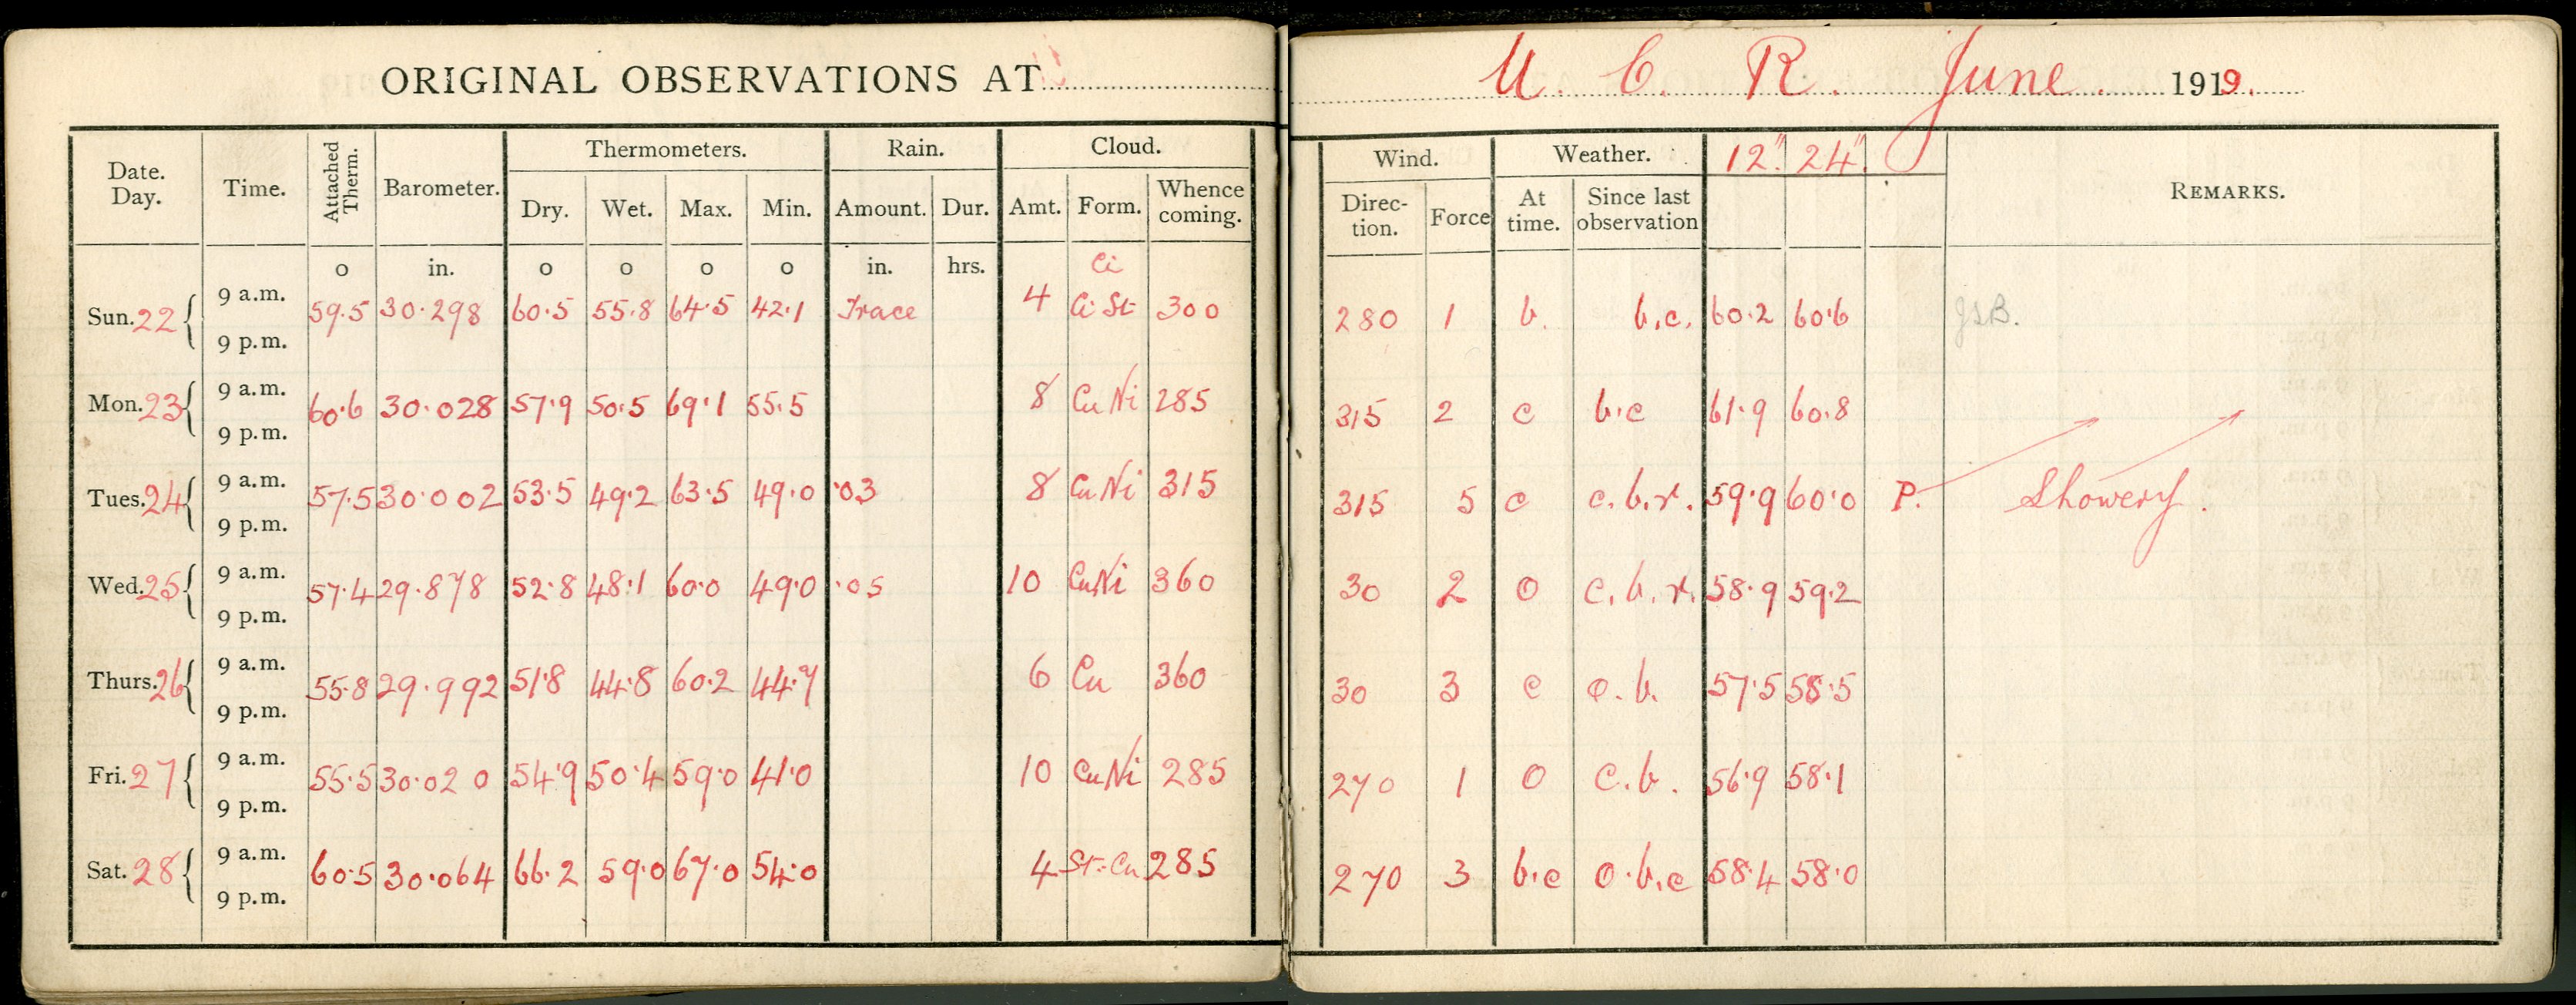 ORIGINAL OBSERVATIONS AT U. C. R. June. 1919.
Date. Day. Time. Attached Therm. Barometer. Thermometers. Rain. Cloud. Wind. Weather. 12" 24" REMARKS.
Dry. Wet. Max. Min. Amount. Dur. Amt. Form. Whence coming. Direc-tion. Force At time. Since last observation
o in. o o o o in. hrs. Ci
Sun. 22 { 9 a.m. 59.5 30.298 60.5 55.8 64.5 42.1 Trace 4 Ci St 300 280 1 b. b.c. 60.2 60.6 JSB.
9 p.m.
Mon. 23 { 9 a.m. 60.6 30.028 57.9 50.5 69.1 55.5 8 Cu Ni 285 315 2 c b.c 61.9 60.8
9 p.m.
Tues. 24 { 9 a.m. 57.5 30.002 53.5 49.2 63.5 49.0 .03 8 Cu Ni 315 315 5 c c.b.r. 59.9 60.0 P. Showery.
9 p.m.
Wed. 25 { 9 a.m. 57.4 29.878 52.8 48.1 60.0 49.0 .05 10 CuNi 360 30 2 o c.b.r. 58.9 59.2
9 p.m.
Thurs. 26 { 9 a.m. 55.8 29.992 51.8 44.8 60.2 44.7 6 Cu 360 30 3 c o.b. 57.5 58.5
9 p.m.
Fri. 27 { 9 a.m. 55.5 30.020 54.9 50.4 59.0 41.0 10 CuNi 285 270 1 o c.b. 56.9 58.1
9 p.m.
Sat. 28 { 9 a.m. 60.5 30.064 66.2 59.0 67.0 54.0 4 St-Cu 285 270 3 b.c o.b.c 58.4 58.0
9 p.m.